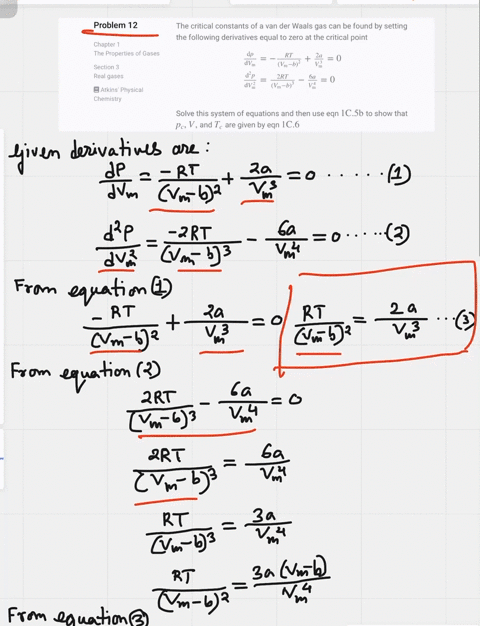 Problem 12
Chapter 1
The Properties of Gases
Section 3
Real gases
Atkins: Physical
Chemistry
The critical constants of a van der Waals gas can be found by setting
the following derivatives equal to zero at the critical point
dp/dVₘ = − RT/(Vₘ−b)² + 2a/Vₘ³ = 0
d²p/dVₘ² = 2RT/(Vₘ−b)³ − 6a/Vₘ⁴ = 0
Solve this system of equations and then use eqn 1C.5b to show that
p_c, V, and T_c are given by eqn 1C.6
Given derivatives are :
dP/dVm = −RT/(Vm−b)² + 2a/Vm³ = 0 ······ (1)
d²P/dVm² = −2RT/(Vm−b)³ − 6a/Vm⁴ = 0 ····· (2)
From equation (1)
−RT/(Vm−b)² + 2a/Vm³ = 0
RT/(Vm−b)² = 2a/Vm³ ··· (3)
From equation (2)
2RT/(Vm−b)³ − 6a/Vm⁴ = 0
2RT/(Vm−b)³ = 6a/Vm⁴
RT/(Vm−b)³ = 3a/Vm⁴
RT/(Vm−b)² = 3a(Vm−b)/Vm⁴
From equation (3)